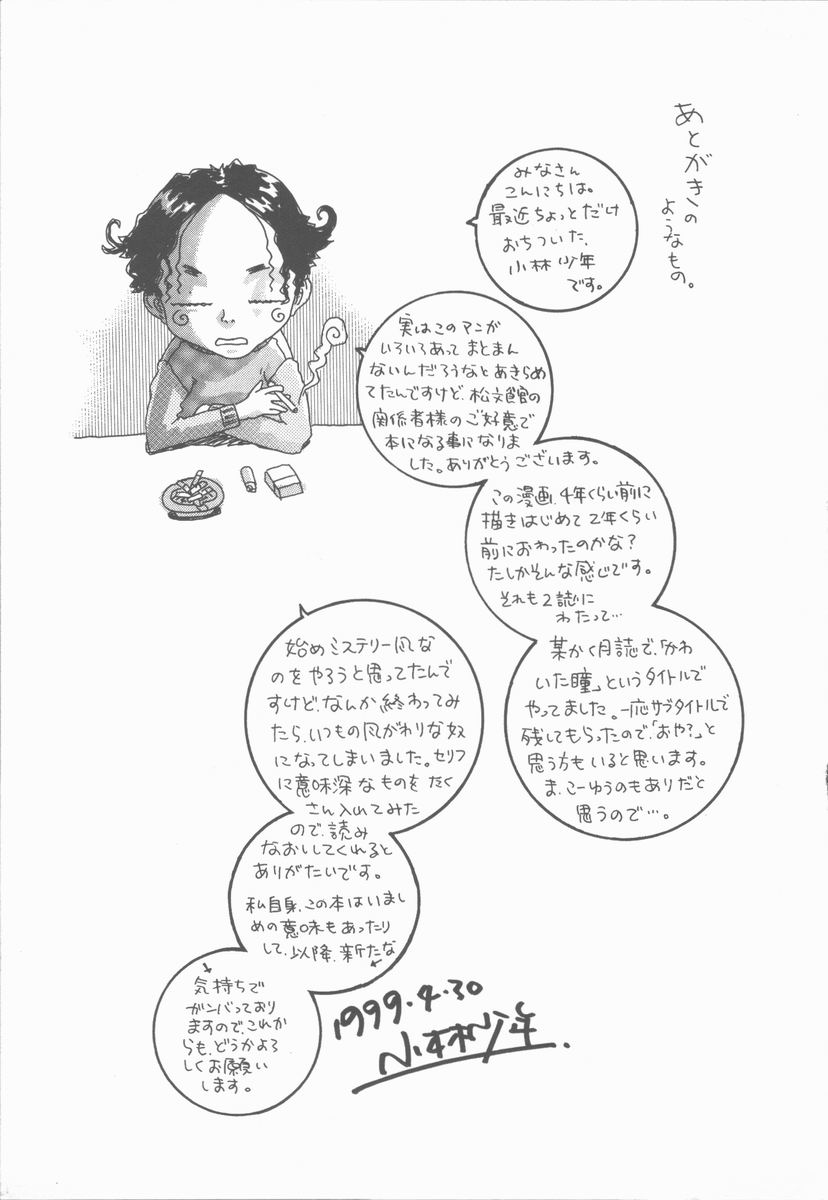 あとがきの
ようなもの。
みなさん
こんにちは。
最近ちょっとだけ
おちついた、
小林少年
です。
実はこのマンガ
いろいろあって まとまん
ないんだろうなとあきらめ
てたんですけど、松文館の
関係者様のご好意で
本になる事になりま
した。ありがとうございます。
この漫画、4年くらい前に
描きはじめて 2年くらい
前におわったのかな?
たしかそんな感じです。
それも2誌に
わたって…
某かく月誌で、「かわ
いた瞳」というタイトルで
やってました。一応サブタイトルで
残してもらったので、「おや?」と
思う方もいると思います。
ま、こーゆうのもありだと
思うので…。
始めミステリー風な
のをやろうと思ってたんで
すけど、なんか終わってみ
たら、いつもの風がわりな奴
になってしまいました。セリフ
に意味深なものを たく
さん入れてみた
ので、読み
なおしてくれると
ありがたいです。
私自身、この本はいまし
めの意味もあったり
して、以降、新たな
気持ちで
ガンバっており
ますので、これか
らも、どうかよろ
しくお願い
します。
1999.4.30
小林少年.